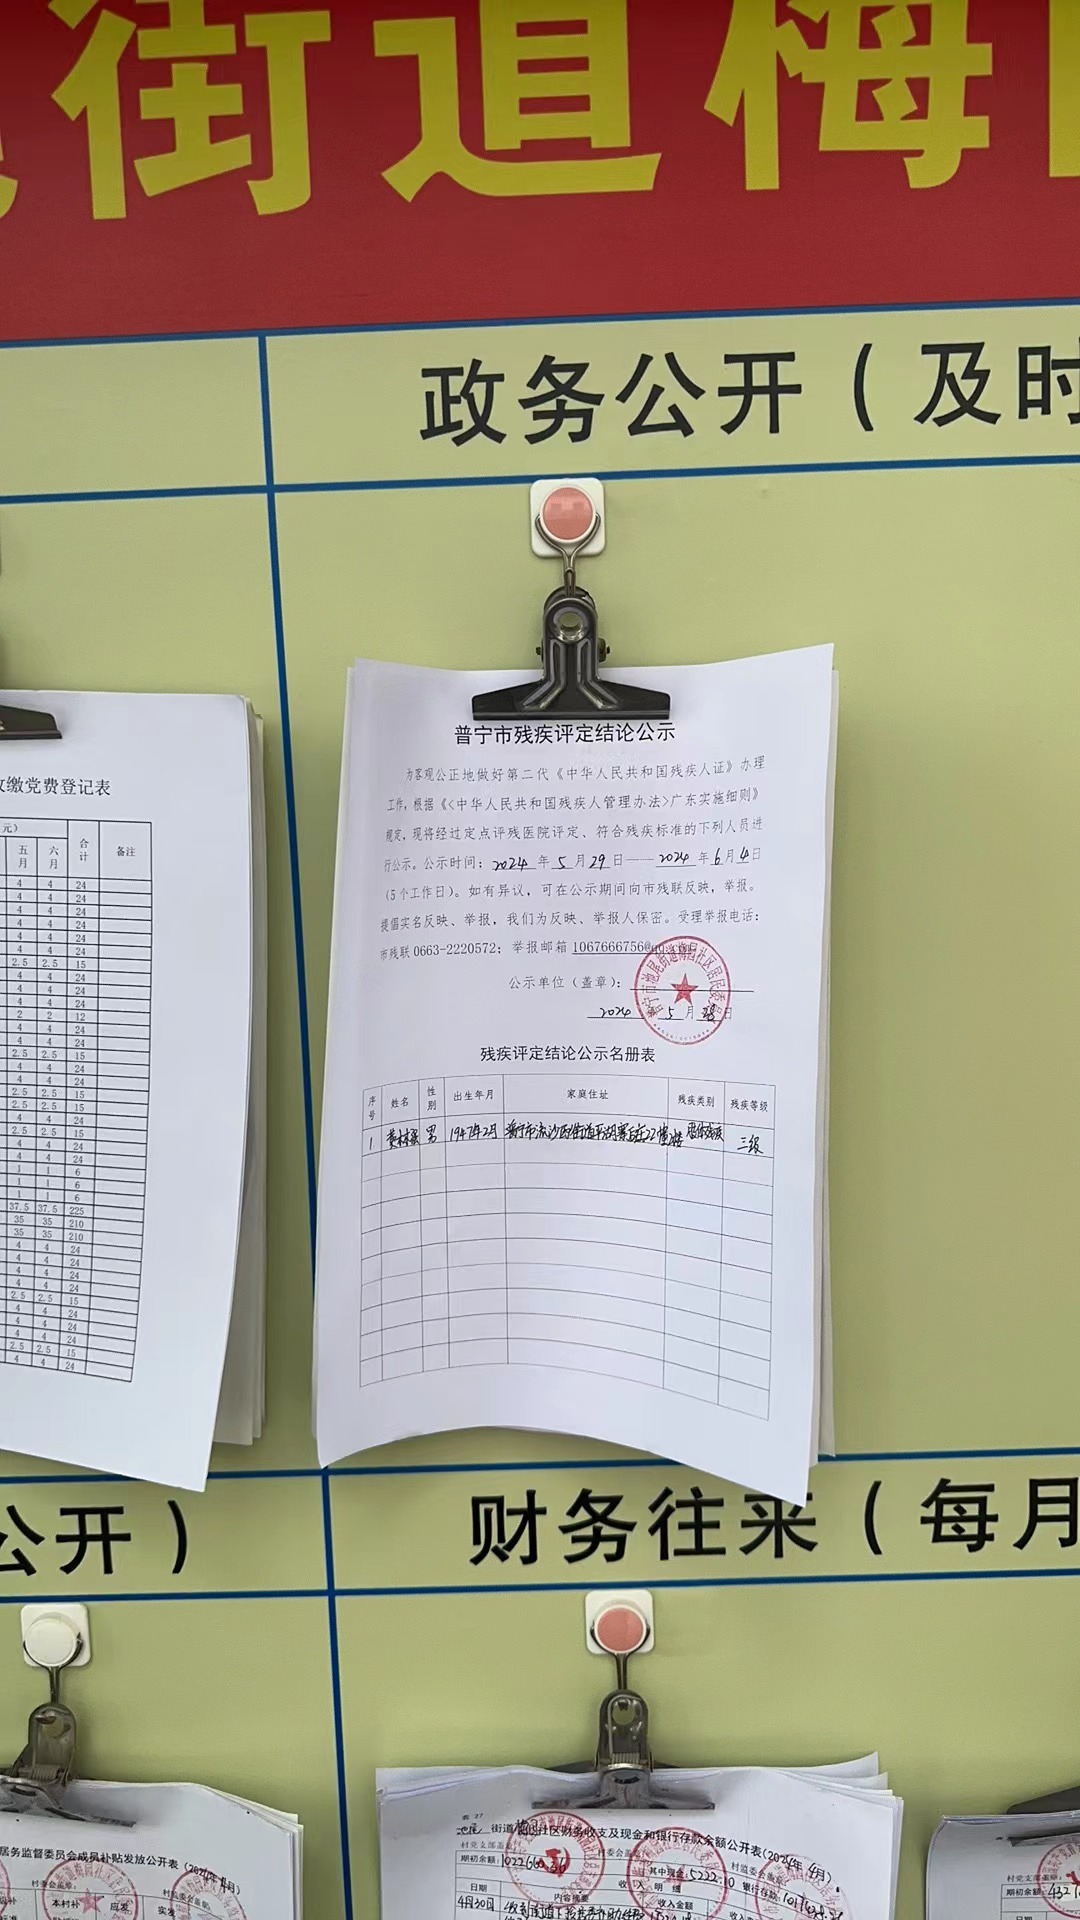 街道梅
政务公开（及时
普宁市残疾评定结论公示
为客观公正地做好第二代《中华人民共和国残疾人证》办理
工作，根据《<中华人民共和国残疾人管理办法>广东实施细则》
规定，现将经过定点评残医院评定、符合残疾标准的下列人员进
行公示。公示时间：2024 年 5 月 29 日——2024 年 6 月 4 日
（5个工作日）。如有异议，可在公示期间向市残联反映，举报。
提倡实名反映、举报，我们为反映、举报人保密。受理举报电话：
市残联 0663-2220572；举报邮箱 1067666756@qq.com
公示单位（盖章）：
普宁市池尾街道梅园社区居民委员会
2024 5 月 28 日
残疾评定结论公示名册表
序号 姓名 性别 出生年月 家庭住址 残疾类别 残疾等级
1 男 1947年2月 三级
收缴党费登记表
元）
五月 六月 合计 备注
4 4 24
4 4 24
4 4 24
4 4 24
4 4 24
4 4 24
2.5 2.5 15
4 4 24
4 4 24
4 4 24
2 2 12
4 4 24
4 4 24
2.5 2.5 15
4 4 24
4 4 24
2.5 2.5 15
2.5 2.5 15
4 4 24
2.5 2.5 15
4 4 24
4 4 24
1 1 6
1 1 6
1 1 6
37.5 37.5 225
35 35 210
35 35 210
4 4 24
4 4 24
4 4 24
2.5 2.5 15
4 4 24
4 4 24
4 4 24
2.5 2.5 15
4 4 24
公开）
财务往来（每月
居务监督委员会成员补贴发放公开表（2024年 月）
村委会盖章：
村监委会盖章：
本村补 应发 实发
表 27
池尾 街道梅园社区财务收支及现金和银行存款余额公开表（2024年 4月）
村党支部盖章：
村委会盖章：
村监委会盖章：
期初余额： 其中现金：5222.10 银行存款：
收 入 明 细
日期 内容摘要 收入金额
4月30日
村党支部盖章：
期初余额：
日期